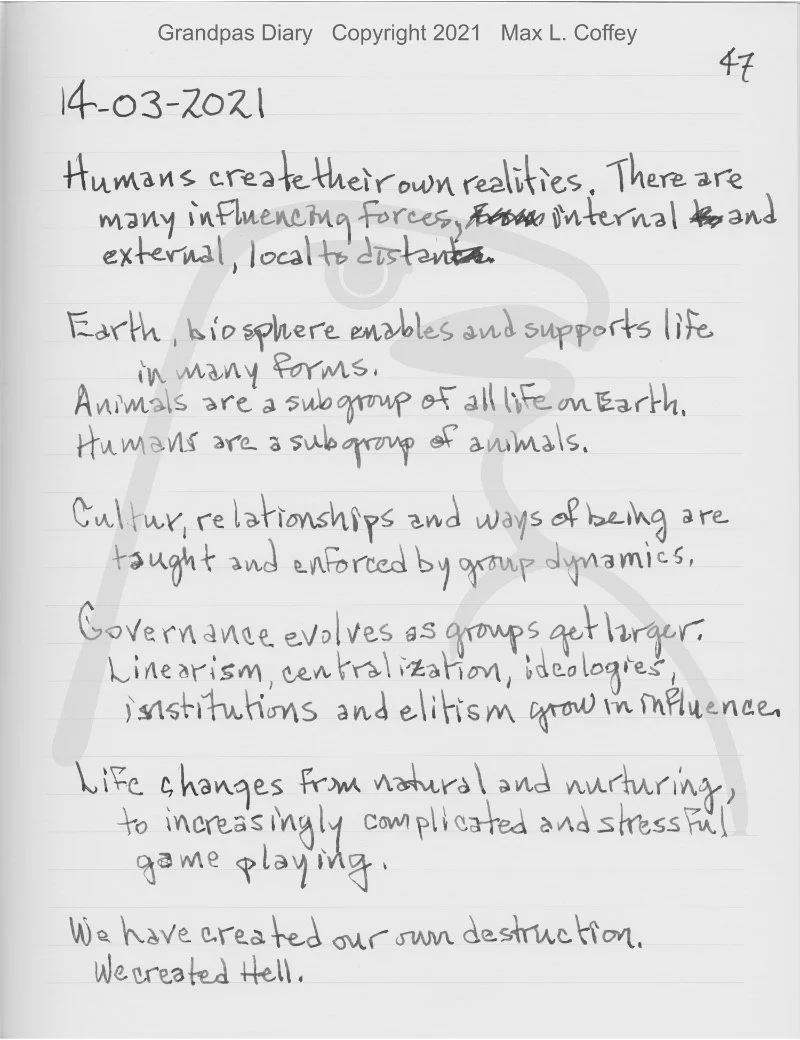 Grandpas Diary Copyright 2021 Max L. Coffey
47
14-03-2021
Humans create their own realities. There are
many influencing forces, internal and
external, local to distant.
Earth, biosphere enables and supports life
in many forms.
Animals are a subgroup of all life on Earth.
Humans are a subgroup of animals.
Cultur, relationships and ways of being are
taught and enforced by group dynamics.
Governance evolves as groups get larger.
Linearism, centralization, ideologies,
institutions and elitism grow in influence.
Life changes from natural and nurturing,
to increasingly complicated and stressful
game playing.
We have created our own destruction.
We created Hell.